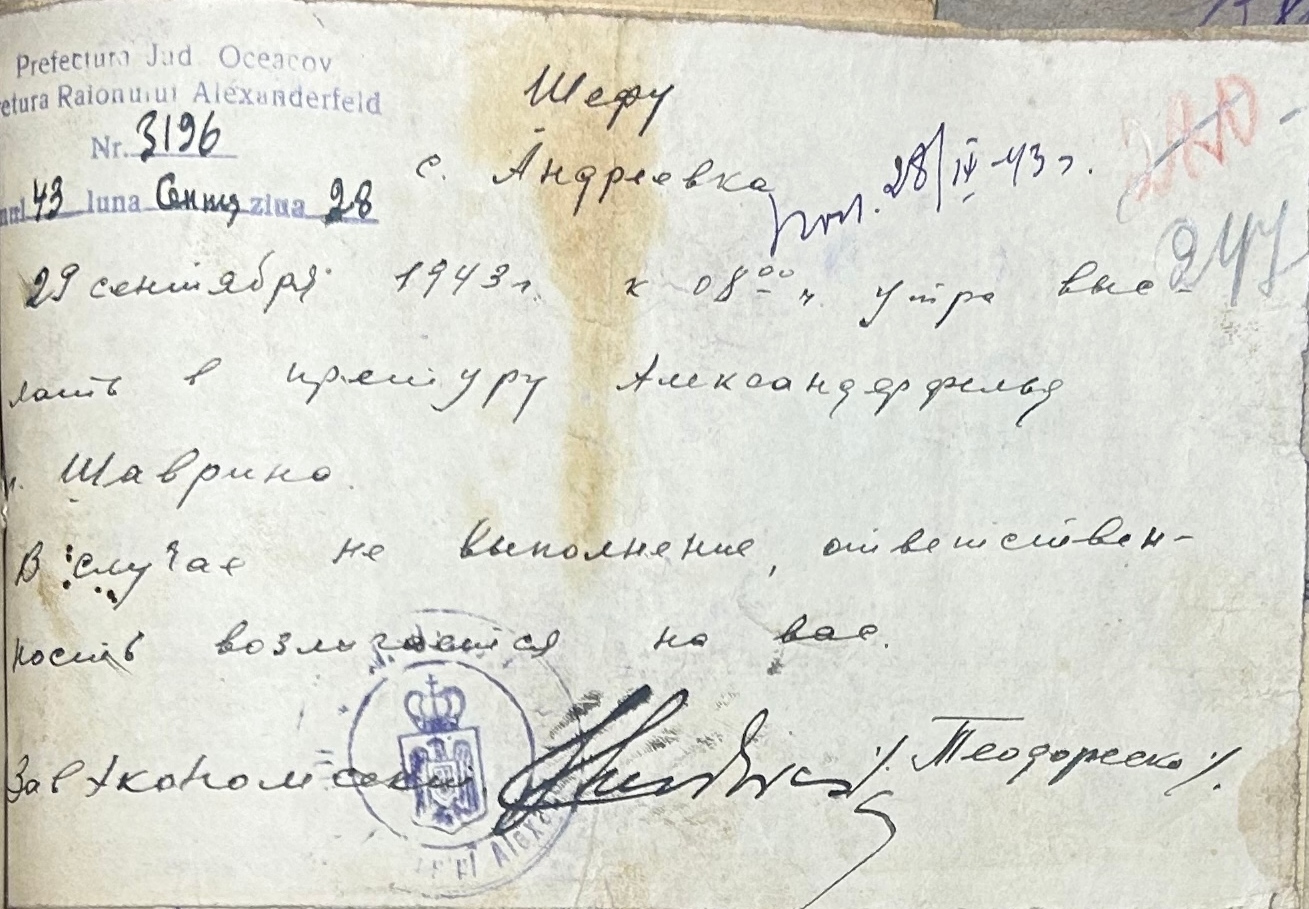 Prefectura Jud. Oceacov
etura Raionului Alexanderfeld
Nr. 3196
nul 43 luna Сентя ziua 28
Шефу
с. Андреевка
28/IX 43 г.
240
247
29 сентября 1943 г. к 08⁰⁰ ч. утра выс-
лать в претуру Александерфельд
г. Шаврина.
В случае не выполнение, ответствен-
ность возлагается на вас.
Зав Экономсекц ./. Теодореско ./.
Alexa